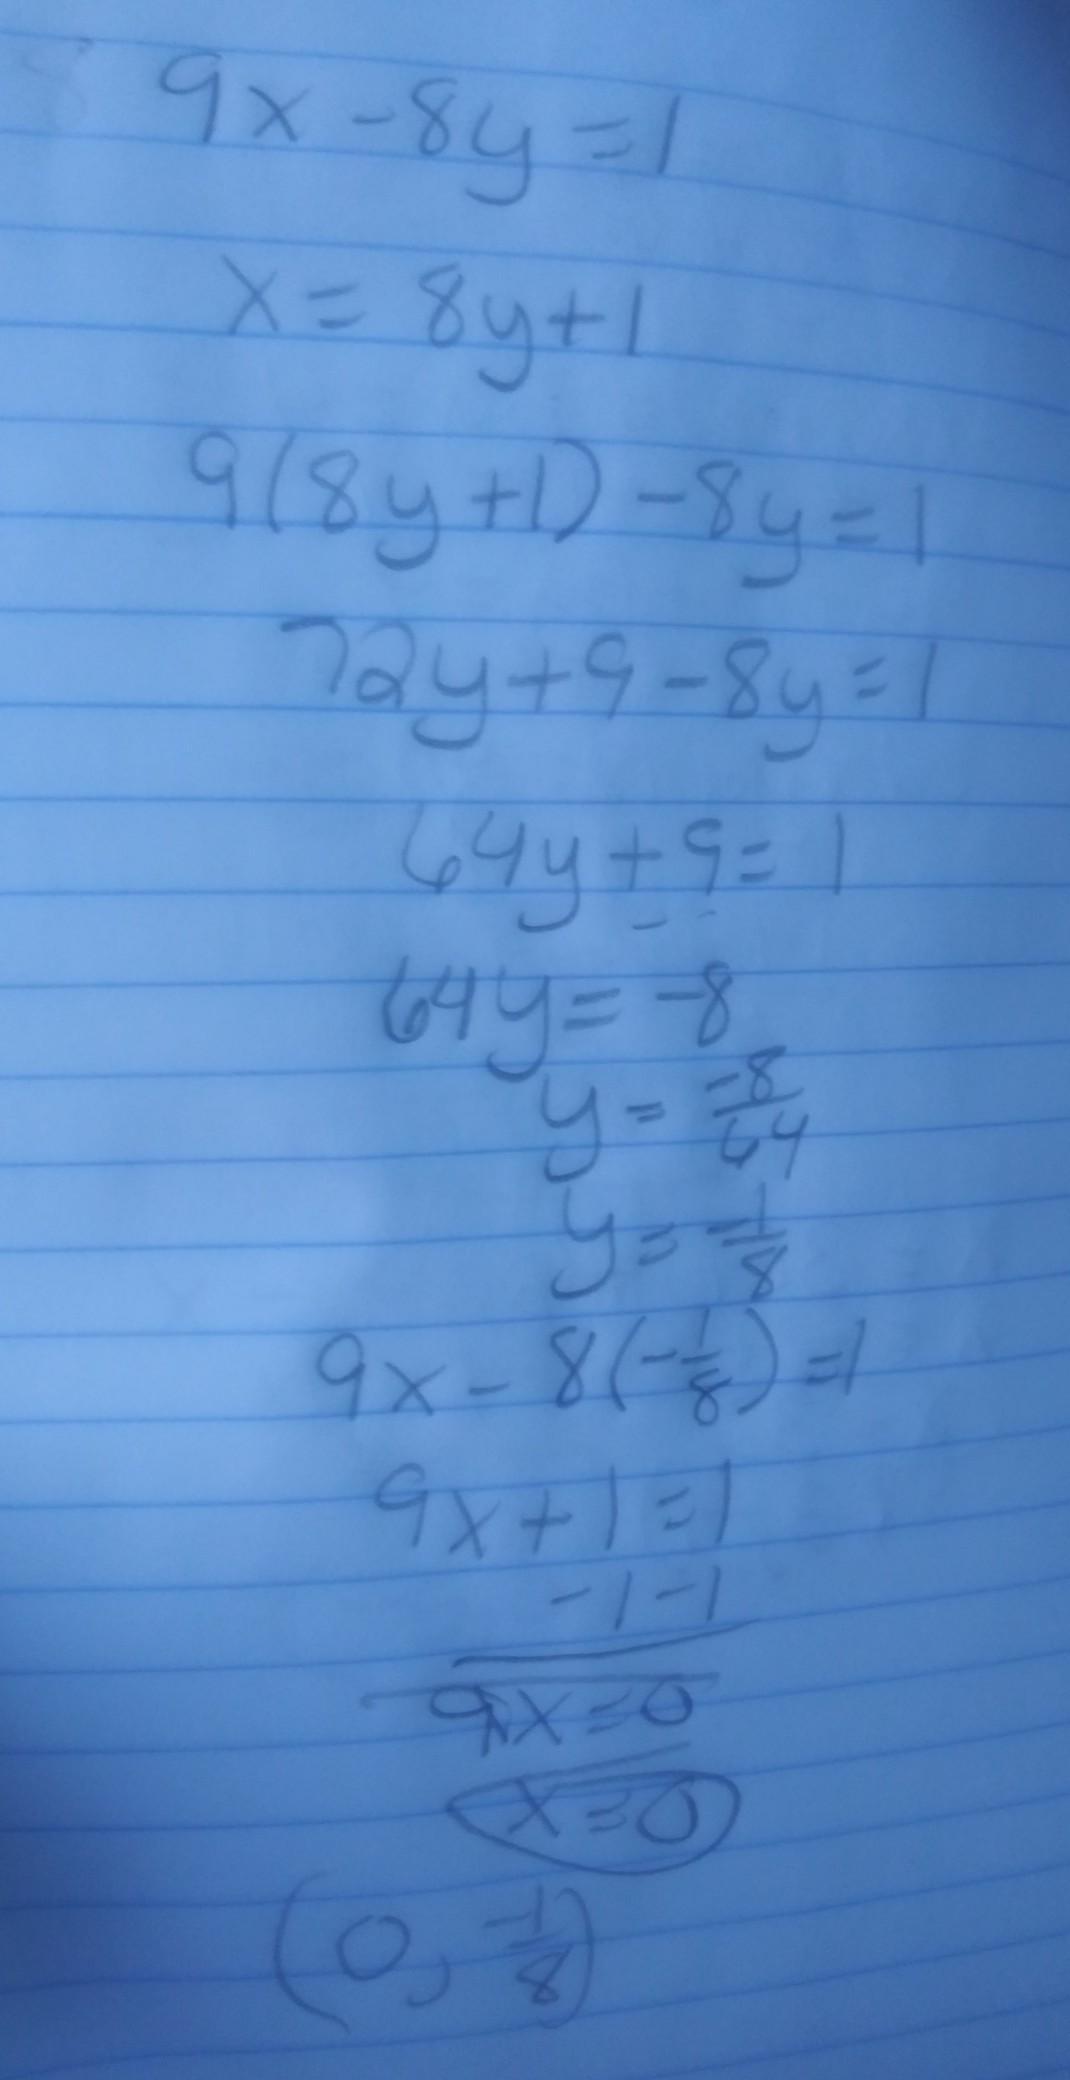 9x - 8y = 1
x = 8y + 1
9(8y + 1) - 8y = 1
72y + 9 - 8y = 1
64y + 9 = 1
- -
64y = -8
y = -8/64
y = -1/8
9x - 8(-1/8) = 1
9x + 1 = 1
-1 -1
9x = 0
x = 0
(0, -1/8)